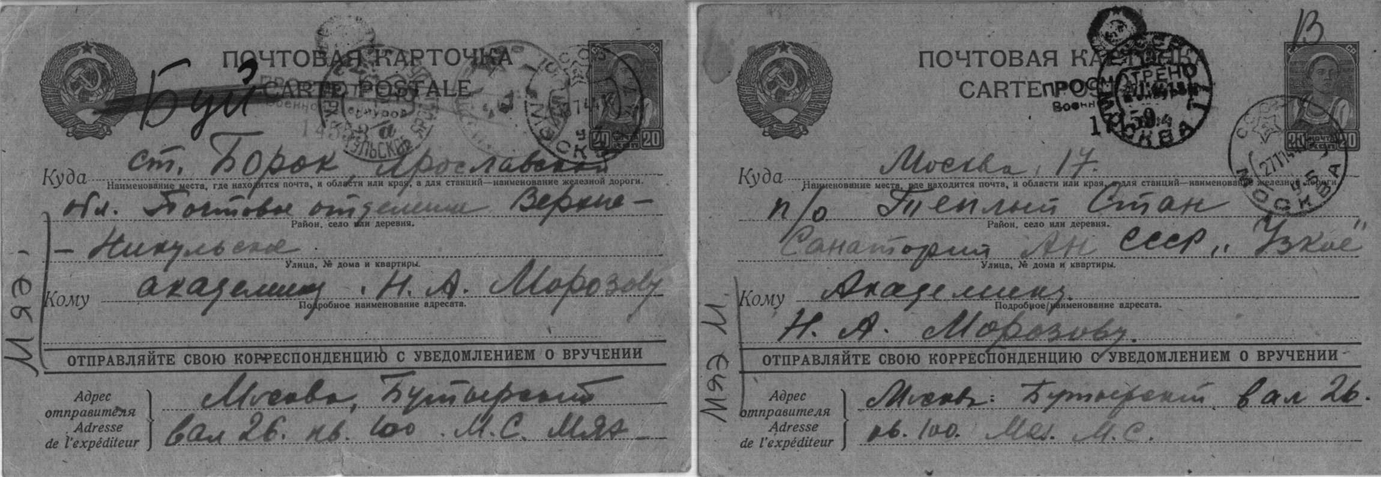 ПОЧТОВАЯ КАРТОЧКА
CARTE POSTALE
Буй
20 20
МОСКВА
Куда ст. Борок, Ярославской
Наименование места, где находится почта, и области или края, а для станций—наименование железной дороги.
обл. Почтовое отделение Верхне-
Район, село или деревня.
- Никульское
Улица, № дома и квартиры.
Кому академику Н. А. Морозову
Подробное наименование адресата.
ОТПРАВЛЯЙТЕ СВОЮ КОРРЕСПОНДЕНЦИЮ С УВЕДОМЛЕНИЕМ О ВРУЧЕНИИ
Адрес отправителя
Adresse de l'expéditeur
Москва, Бутырский
вал 26. кв. 100. М.С. Мяэ
МЯЭ
ПОЧТОВАЯ
CARTE
В
20 20
ПРОСМОТРЕНО
МОСКВА
МОСКВА
Куда Москва, 17.
Наименование места, где находится почта, и области или края, а для станций—наименование железной дороги
п/о Теплый Стан
Район, село или деревня.
Санаторий АН СССР „Узкое"
Улица, № дома и квартиры.
Кому Академику
Подробное наименование адресата.
Н. А. Морозову.
ОТПРАВЛЯЙТЕ СВОЮ КОРРЕСПОНДЕНЦИЮ С УВЕДОМЛЕНИЕМ О ВРУЧЕНИИ
Адрес отправителя
Adresse de l'expéditeur
Москва. Бутырский вал 26.
кв. 100. М.С.
МЯЭ М.